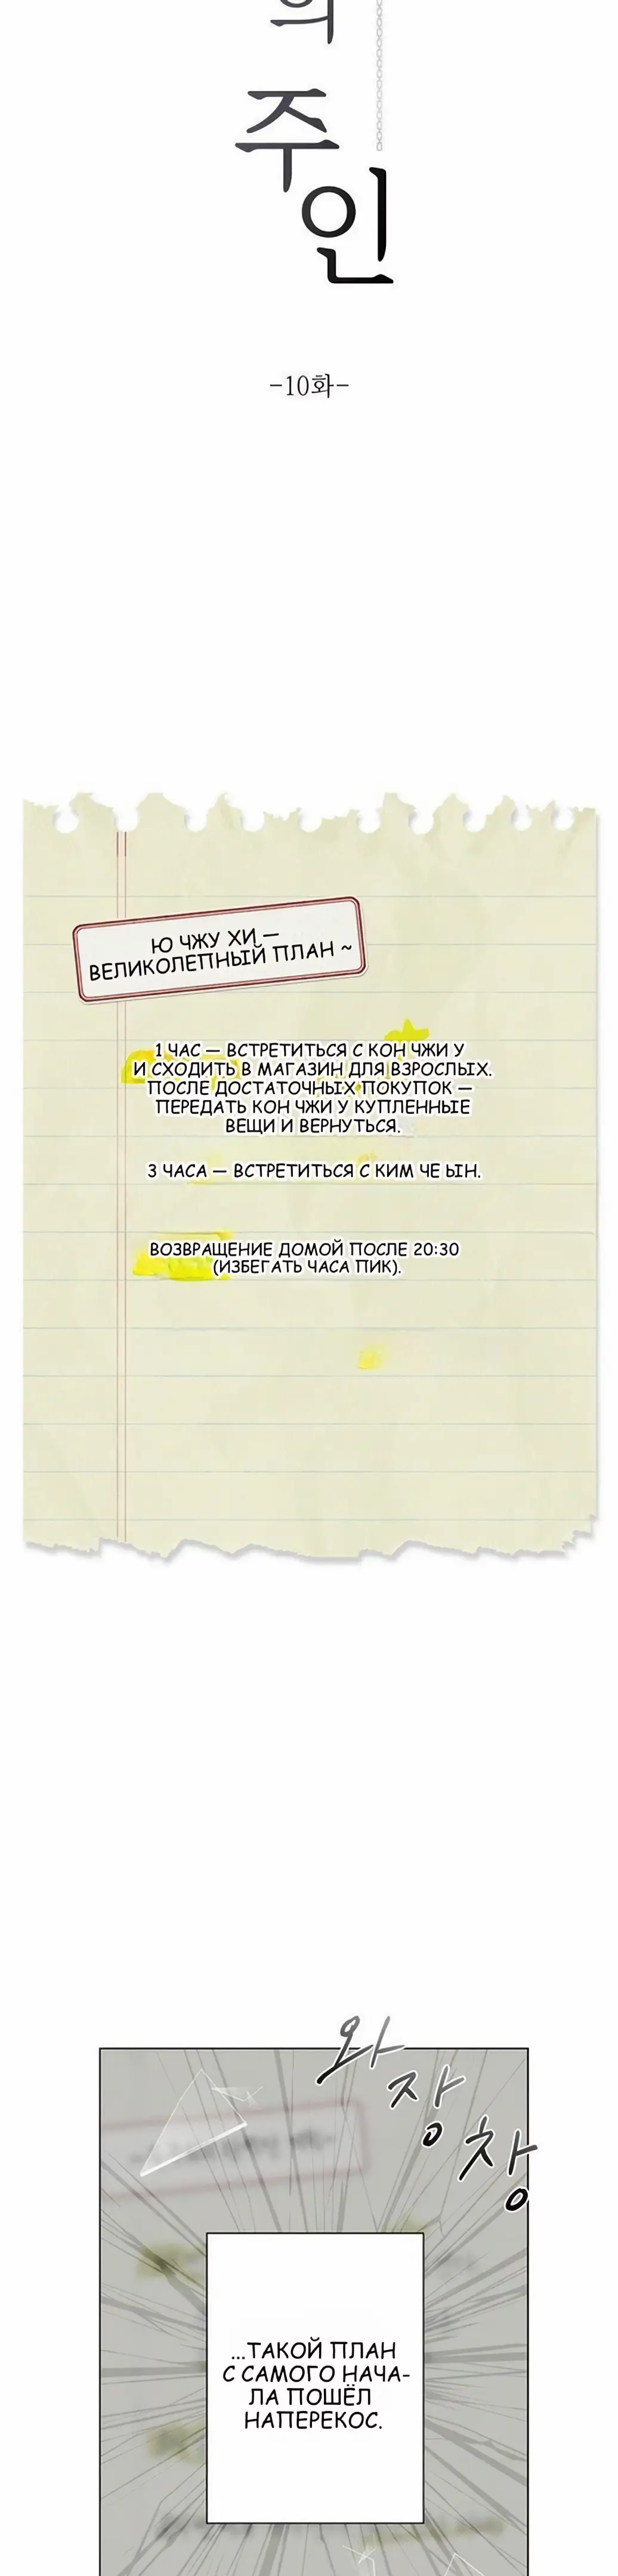 의
주
인
-10화-
Ю ЧЖУ ХИ —
ВЕЛИКОЛЕПНЫЙ ПЛАН ~
1 ЧАС — ВСТРЕТИТЬСЯ С КОН ЧЖИ У
И СХОДИТЬ В МАГАЗИН ДЛЯ ВЗРОСЛЫХ.
ПОСЛЕ ДОСТАТОЧНЫХ ПОКУПОК —
ПЕРЕДАТЬ КОН ЧЖИ У КУПЛЕННЫЕ
ВЕЩИ И ВЕРНУТЬСЯ.
3 ЧАСА — ВСТРЕТИТЬСЯ С КИМ ЧЕ ЫН.
ВОЗВРАЩЕНИЕ ДОМОЙ ПОСЛЕ 20:30
(ИЗБЕГАТЬ ЧАСА ПИК).
와장창
...ТАКОЙ ПЛАН
С САМОГО НАЧА-
ЛА ПОШЁЛ
НАПЕРЕКОС.